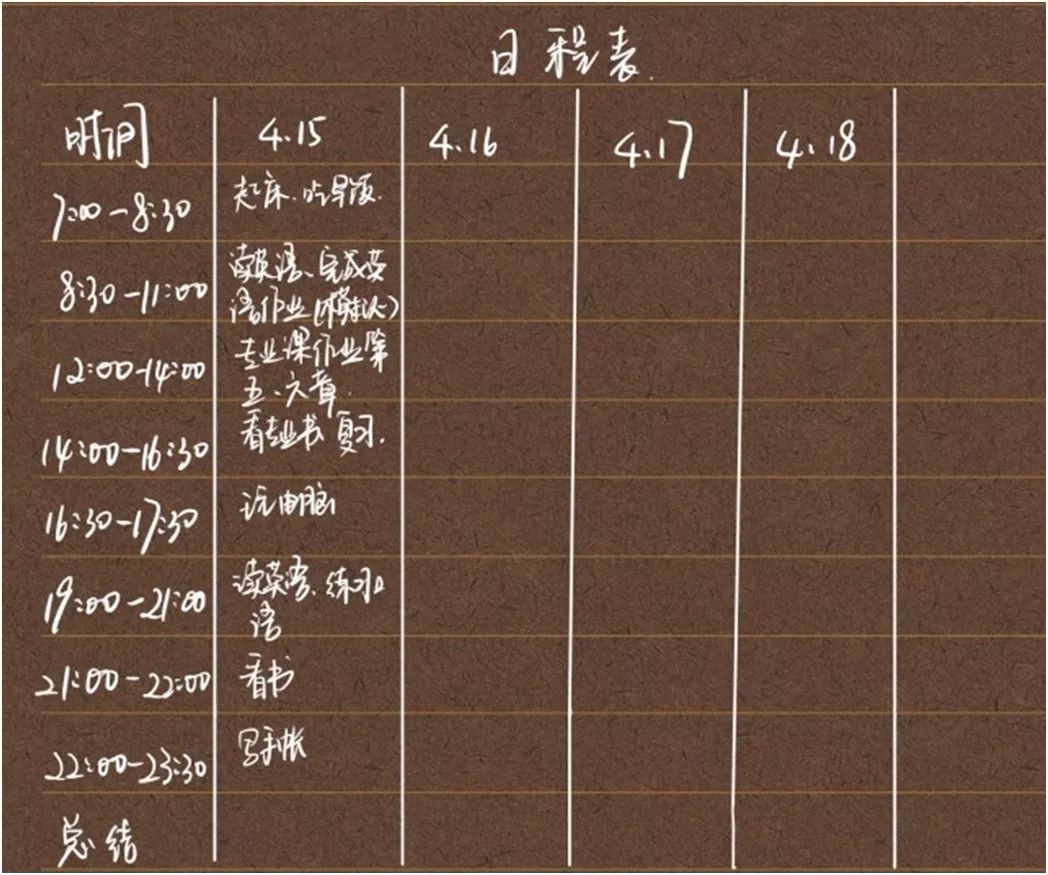 日程表.
时间 4.15 4.16 4.17 4.18
7:00-8:30 起床、吃早饭.
8:30-11:00 读英语、完成英
语作业(模拟)
12:00-14:00 专业课作业第
五、六章.
14:00-16:30 看专业书 复习.
16:30-17:30 玩电脑
19:00-21:00 读英语、练习口
语
21:00-22:00 看书
22:00-23:30 写手帐
总结